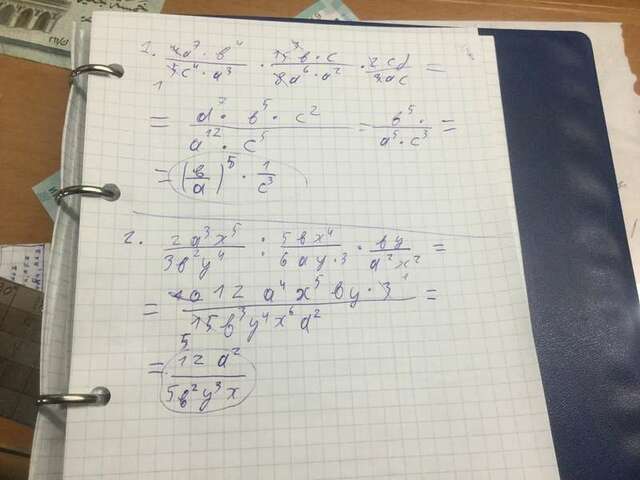 1. 4a⁷·b⁴/5c⁴·a³ · 15b·c/8a⁶·a² · 2cd/3ac =
= d⁷·b⁵·c²/a¹²·c⁵ = b⁵·/a⁵·c³ =
= (b/a)⁵ · 1/c³
2. 2a³x⁵/3b²y⁴ : 5bx⁴/6ay·3 · by/a²x² =
= 12 a⁴x⁵by·3/15b³y⁴x⁶a² =
= 12a²/5b²y³x